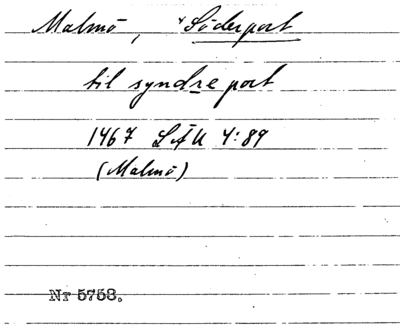 Malmö, ᵛSöderport
til syndre port
1467 LÄU 4:89
(Malmö)
Nr 5758.